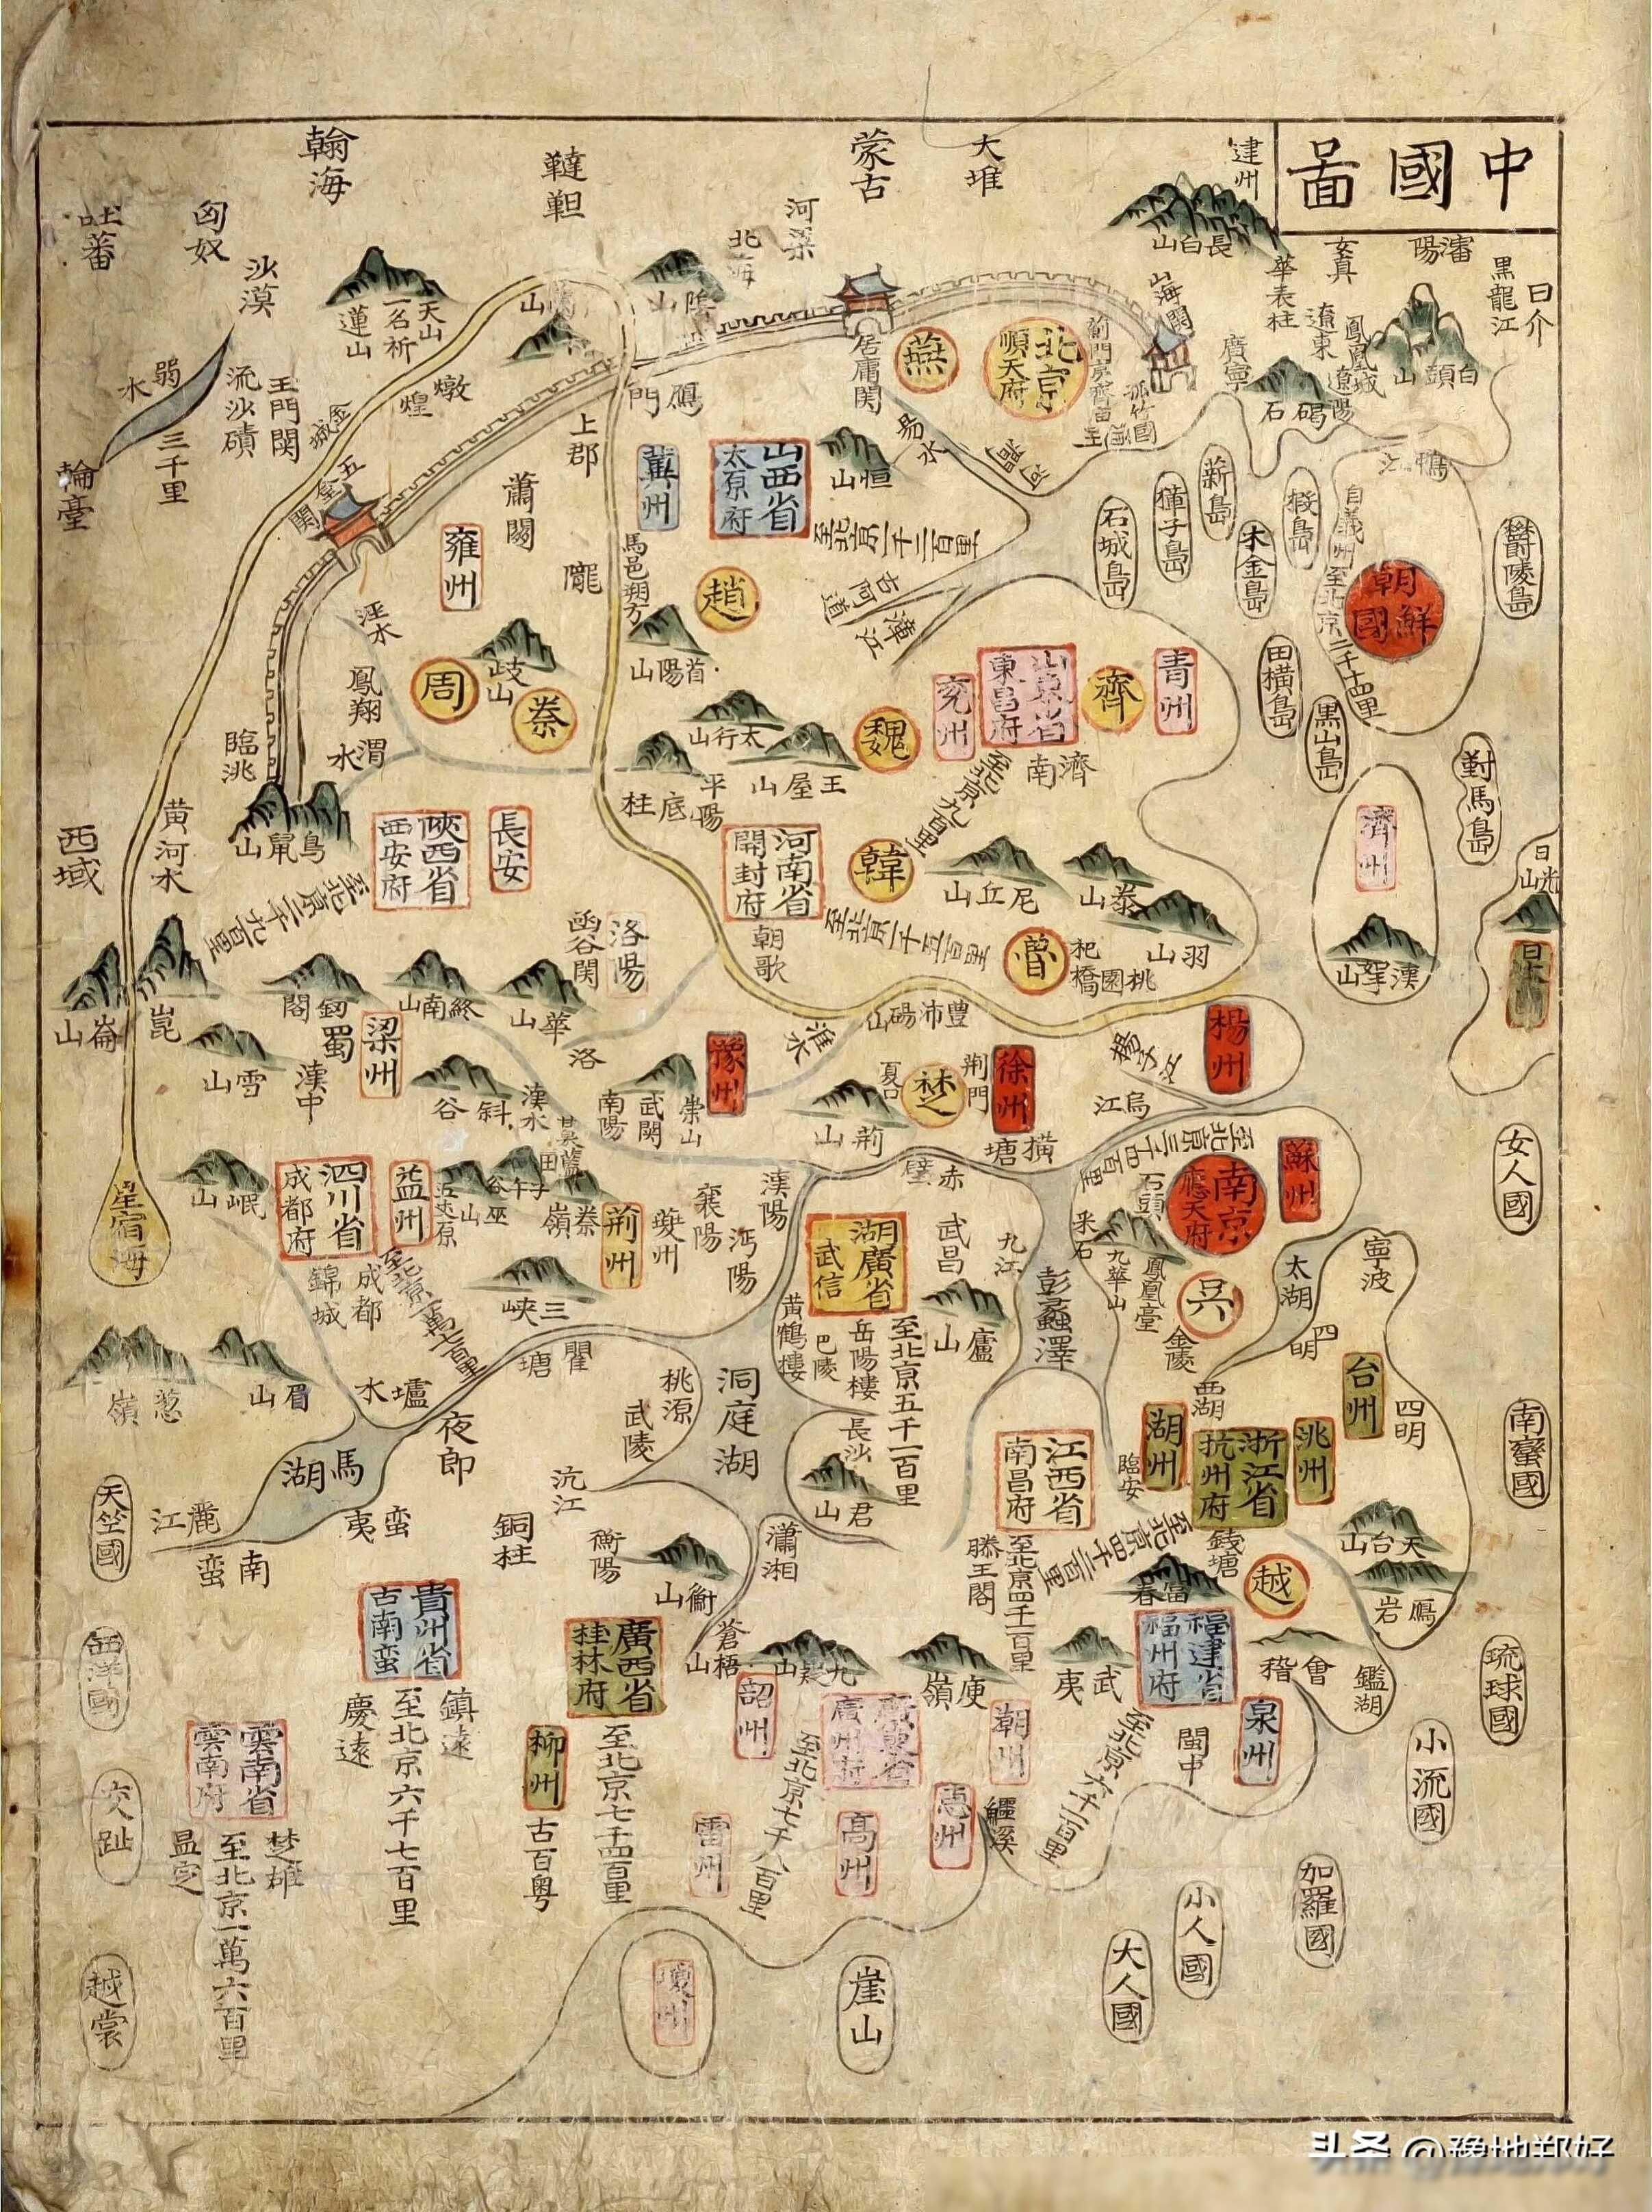 中國啚
建州
大堆
蒙古
河梁
北海
韃靼
翰海
匈奴
吐蕃
沙漠
長白山
瀋陽
女真
華表柱
遼東
鳳凰城
遼陽
黑龍江
日介
白頭山
碣石
廣寧
山海関
孤竹國
北京
順天府
燕
居庸関
陰山
天山
一名祈
蓮山
燉煌
金城
玉門関
流沙磧
弱水
三千里
輪臺
五
関
鴈門
上郡
蕭関
易水
恒山
山西省
太原府
冀州
至北京一千二百里
雍州
馬邑朔方
趙
首陽山
古河道
漳江
涇水
鳳翔
周
岐山
秦
渭水
臨洮
鳥鼠山
黄河水
西域
太行山
王屋山
底柱
平陽
魏
兗州
山東省
東昌府
齊
青州
濟南
至北京九百里
河南省
開封府
朝歌
韓
至北京一千五百里
尼丘山
泰山
羽山
魯
圯橋
桃園
豊沛碭山
陝西省
西安府
長安
至北京二千九百里
洛陽
函谷関
華山
終南山
釼閣
蜀
漢中
梁州
崑崙山
雪山
斜谷
漢水
洛
南陽
武関
崇山
豫州
淮水
荊山
夏口
楚
荆門
徐州
揚子江
楊州
烏江
橫塘
赤壁
至北京三千四百里
南京
應天府
石頭
蘇州
采石
九華山
鳳凰臺
吴
金陵
太湖
寧波
四明
台州
四明
西湖
湖州
浙江省
抗州府
洮州
臨安
錢塘
至北京四千二百里
越
天台山
鴈岩
富春
會稽
鑑湖
福建省
福州府
泉州
閩中
武夷
至北京六千一百里
江西省
南昌府
滕王閣
至北京四千一百里
彭蠡澤
九江
武昌
廬山
湖廣省
武信
黃鶴樓
巴陵
岳陽樓
至北京五千一百里
長沙
君山
漢陽
沔陽
襄陽
荆州
秦嶺
子午谷
巫山
三峽
瞿塘
洞庭湖
桃源
武陵
沅江
瀟湘
衡陽
衡山
蒼梧山
九疑山
庾嶺
韶州
廣東省
廣州府
至北京七千八百里
潮州
惠州
鱷溪
高州
雷州
瓊州
崖山
廣西省
桂林府
柳州
古百粤
至北京七千四百里
銅柱
貴州省
古南蛮
鎮遠
至北京六千七百里
慶遠
雲南省
雲南府
楚雄
至北京一萬六百里
孟定
四川省
成都府
益州
成都
錦城
至北京一萬七百里
岷山
眉山
葱嶺
星宿海
瀘水
夜郎
馬湖
蛮夷
麗江
南蛮
鴨江
朝鮮國
自義州至北京二千十四里
石城島
獐子島
薪島
椵島
木金島
田橫島
黒山島
欝陵島
對馬島
濟州
漢拏山
日光山
日本
女人國
南蠻國
琉球國
小流國
加羅國
小人國
大人國
天竺國
西洋國
交趾
越裳
头条 @豫地郑好